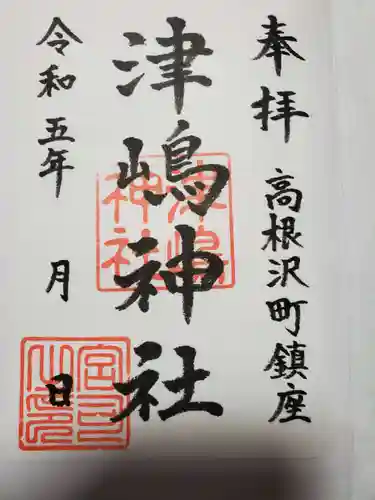 奉拝 高根沢町鎮座
津嶋神社
津嶋
神社
令和五年 月 日